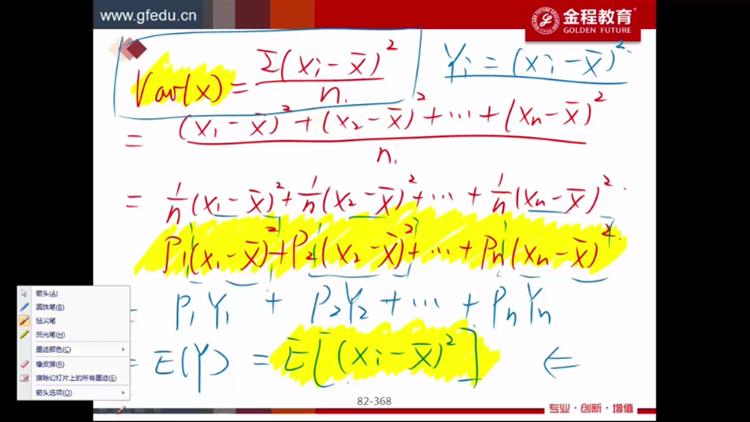 www.gfedu.cn
金程教育
GOLDEN FUTURE
Var(x) = Σ(xi - x̄)² / n.
Yi = (xi - x̄)².
= (x1 - x̄)² + (x2 - x̄)² + ... + (xn - x̄)² / n.
= 1/n (x1 - x̄)² + 1/n (x2 - x̄)² + ... + 1/n (xn - x̄)².
P1(x1 - x̄)² + P2(x2 - x̄)² + ... + Pn(xn - x̄)².
= P1Y1 + P2Y2 + ... + PnYn
= E(Y) = E[(xi - x̄)²] ⇐
箭头(A)
圆珠笔(B)
毡尖笔
荧光笔(H)
墨迹颜色(C)
橡皮擦(R)
擦除幻灯片上的所有墨迹(E)
箭头选项(O)
82-368
专业·创新·增值